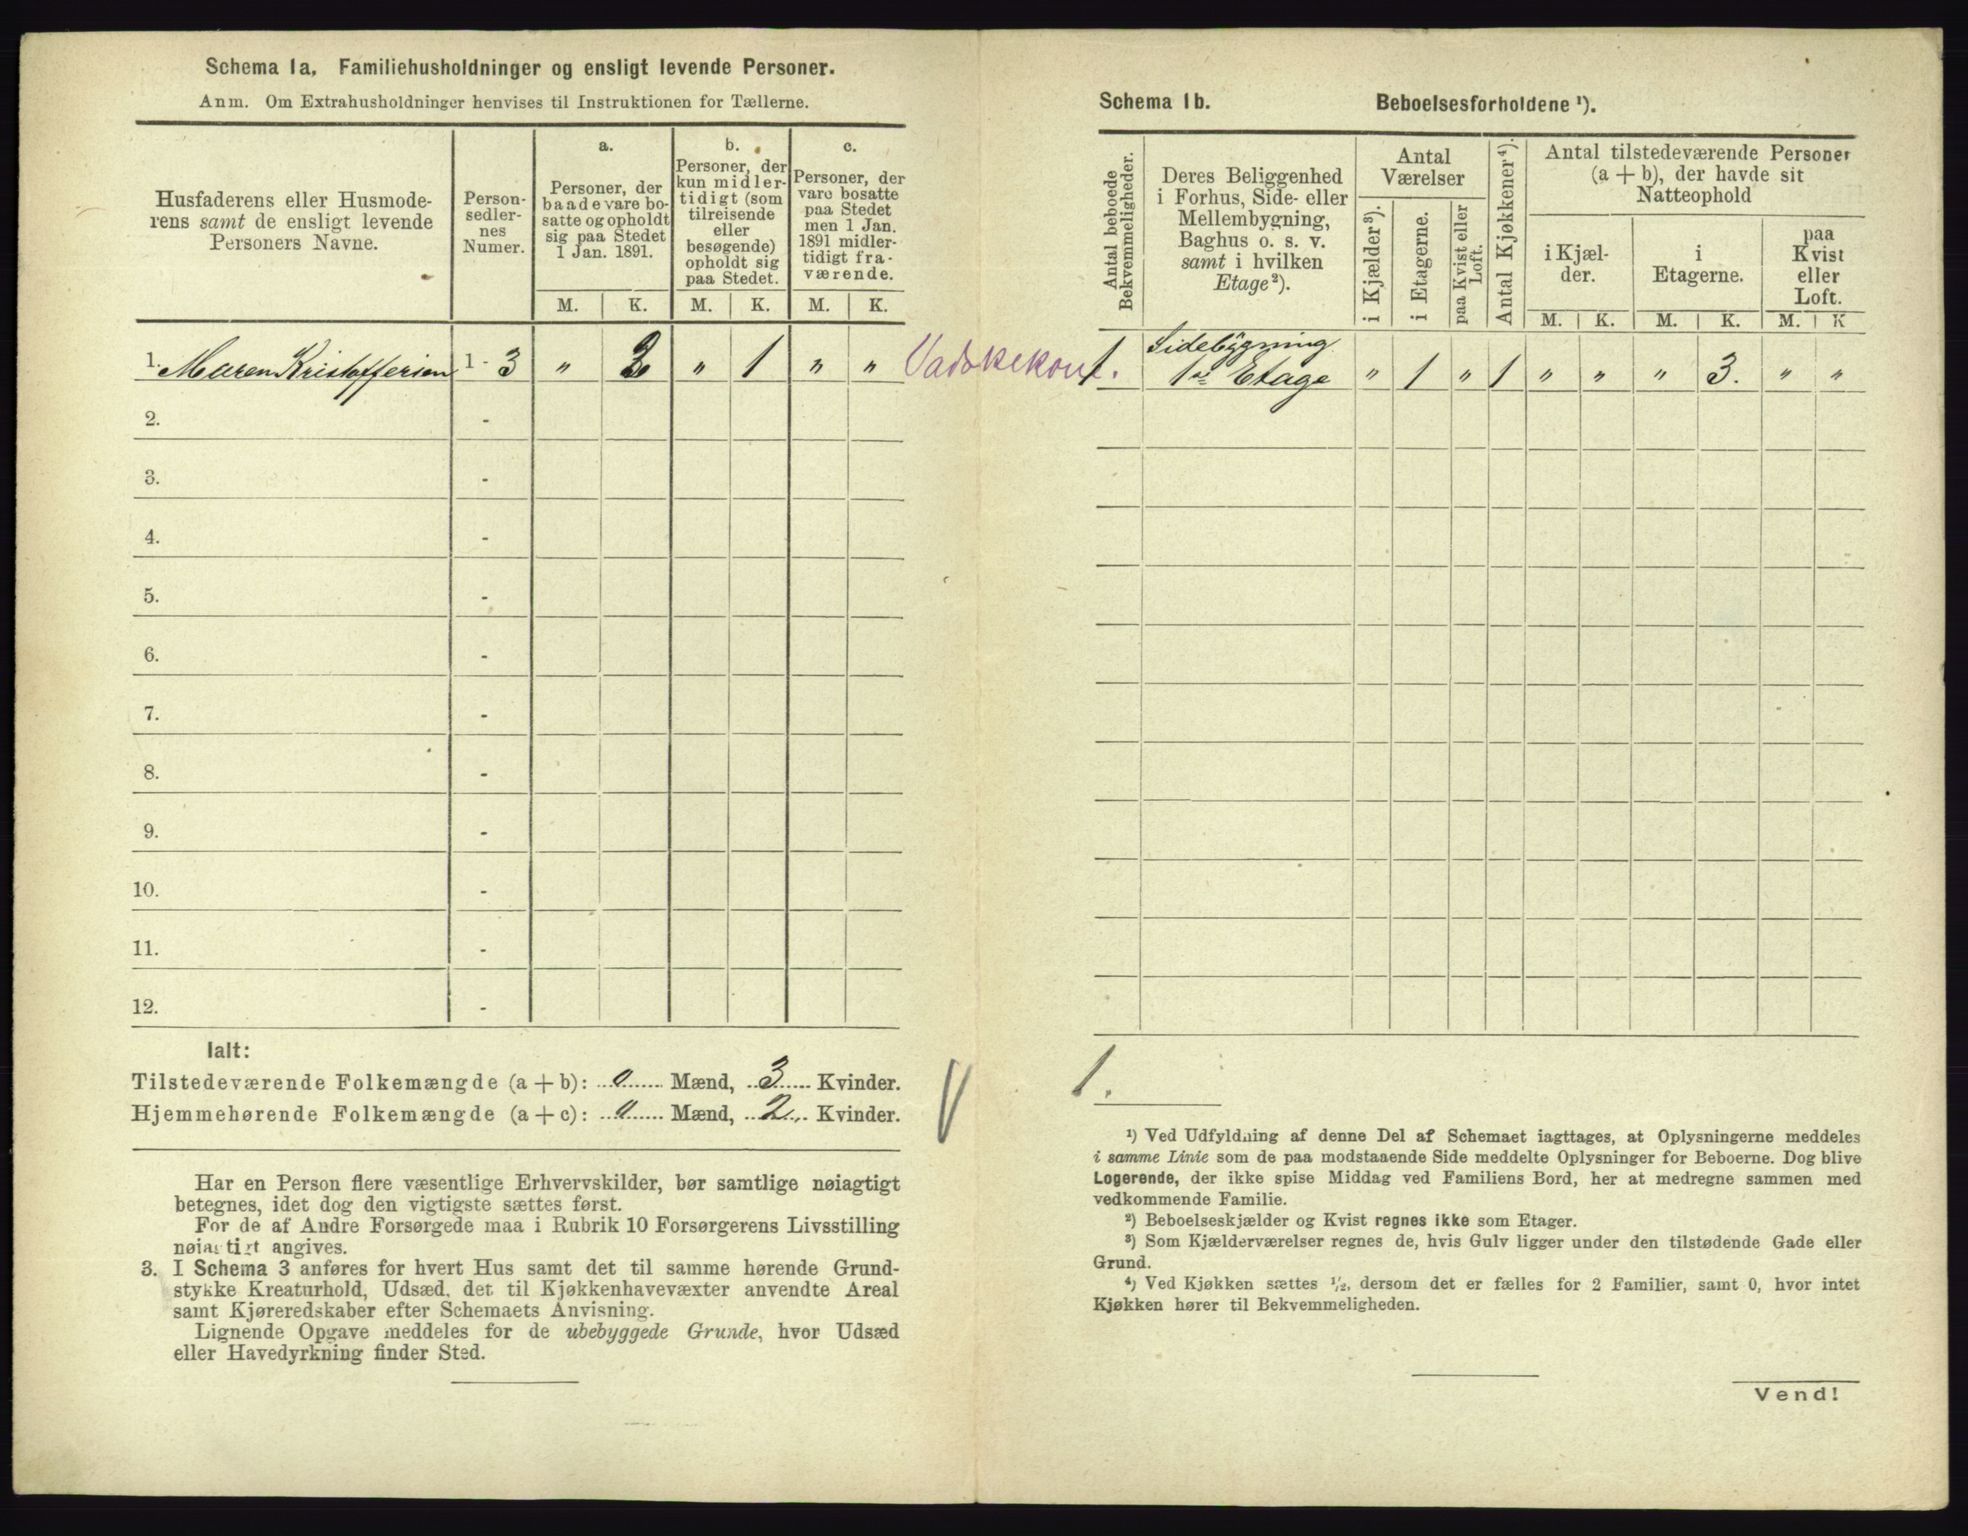 Schema 1a. Familiehusholdninger og ensligt levende Personer.
Anm. Om Extrahusholdninger henvises til Instruktionen for Tællerne.
Husfaderens eller Husmode-
rens samt de ensligt levende
Personers Navne.
Person-
sedler-
nes
Numer.
a.
Personer, der
baade vare bo-
satte og opholdt
sig paa Stedet
1 Jan. 1891.
b.
Personer, der
kun midler-
tidigt (som
tilreisende
eller
besøgende)
opholdt sig
paa Stedet.
c.
Personer, der
vare bosatte
paa Stedet
men 1 Jan.
1891 midler-
tidigt fra-
værende.
M. K. M. K. M. K.
1. Maren Kristoffersen 1 - 3 " 2 " 1 " "
2. -
3. -
4. -
5. -
6. -
7. -
8. -
9. -
10. -
11. -
12. -
Ialt:
Tilstedeværende Folkemængde (a + b): 0 Mænd, 3 Kvinder.
Hjemmehørende Folkemængde (a + c): 0 Mænd, 2 Kvinder.
Har en Person flere væsentlige Erhvervskilder, bør samtlige nøiagtigt
betegnes, idet dog den vigtigste sættes først.
For de af Andre Forsørgede maa i Rubrik 10 Forsørgerens Livsstilling
nøiagtigt angives.
3. I Schema 3 anføres for hvert Hus samt det til samme hørende Grund-
stykke Kreaturhold, Udsæd, det til Kjøkkenhavevæxter anvendte Areal
samt Kjøreredskaber efter Schemaets Anvisning.
Lignende Opgave meddeles for de ubebyggede Grunde, hvor Udsæd
eller Havedyrkning finder Sted.
Schema 1b. Beboelsesforholdene ¹).
Antal beboede
Bekvemmeligheder.
Deres Beliggenhed
i Forhus, Side- eller
Mellembygning,
Baghus o. s. v.
samt i hvilken
Etage²).
Antal
Værelser
i Kjælder³).
i Etagerne.
paa Kvist eller
Loft.
Antal Kjøkkener⁴).
Antal tilstedeværende Personer
(a + b), der havde sit
Natteophold
i Kjæl-
der.
i
Etagerne.
paa
Kvist
eller
Loft.
M. K. M. K. M. K
Sidebygning
1. 1ste Etage " 1 " 1 " " " 3. " "
1.
¹) Ved Udfyldning af denne Del af Schemaet iagttages, at Oplysningerne meddeles
i samme Linie som de paa modstaaende Side meddelte Oplysninger for Beboerne. Dog blive
Logerende, der ikke spise Middag ved Familiens Bord, her at medregne sammen med
vedkommende Familie.
²) Beboelseskjælder og Kvist regnes ikke som Etager.
³) Som Kjælderværelser regnes de, hvis Gulv ligger under den tilstødende Gade eller
Grund.
⁴) Ved Kjøkken sættes ¹/₂, dersom det er fælles for 2 Familier, samt 0, hvor intet
Kjøkken hører til Bekvemmeligheden.
Vend!